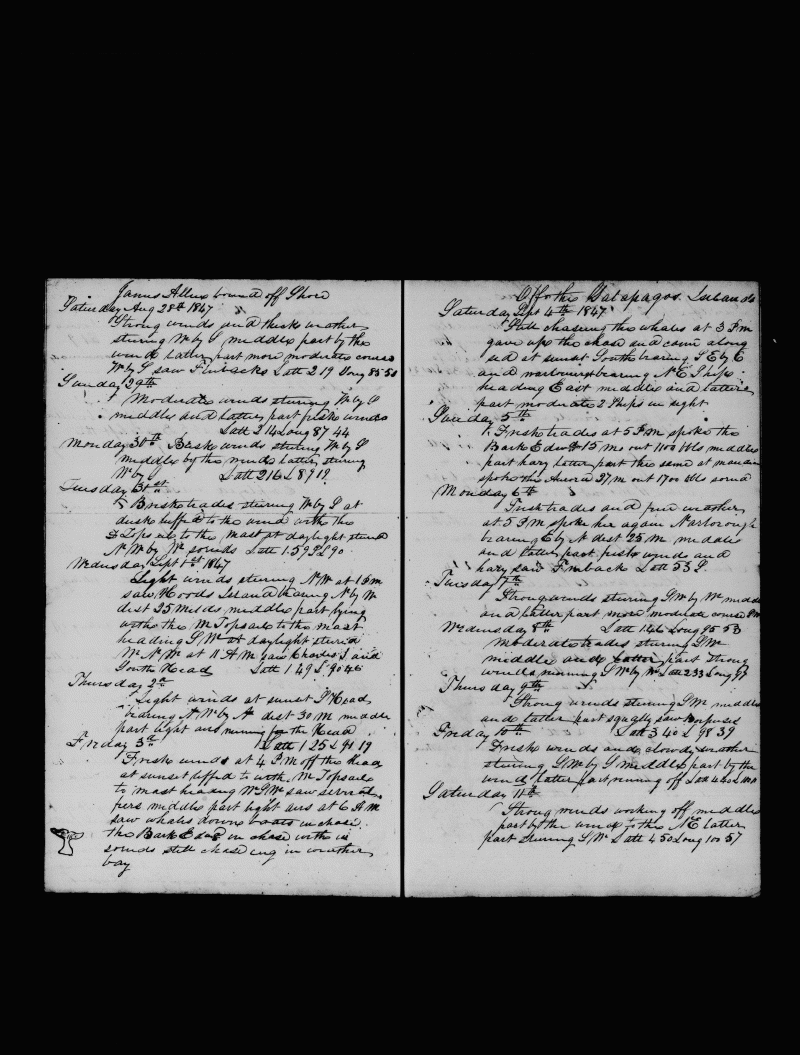 James Allen bound off Shore
Saturday Aug 28th 1847
Strong winds and thick weather
stering W by S middle part by the
wind latter part more moderate course
W by S saw Finbacks Latt 2 19 Long 85 50
Sunday 29th
Moderate winds stering W by S
middle and latter part fresh winds
Latt 2 14 Long 87 44
Monday 30th Brisk winds stering W by S
middle by the wind latter stering
W by S Latt 2 16 L 89 19
Tuesday 31st
Brisk trades stering W by S at
dusk luffed to the wind with the
Tops ail to the mast at daylight sterd
N W by W sounds Latt 1.59 S L 90
Wedusday Sept 1st 1847
Light winds stering N W at 1 P m
saw Hoods Island bearing N by W
dist 25 Miles middle part lying
with the M Topsail to the mast
heading S W at daylight sterd
W N W at 11 A M saw Charles I and
South Head Latt 1 49 L 90 46
Thursday 2d
Light winds at sunset S Head
bearing N W by N dist 30 M middle
part light and running for the Head
Friday 3d Latt 1 25 L 91 19
Fresh winds at 4 P M off the Head
at sunset luffed to with M Topsail
to mast heading W S W saw several
fires middle part light airs at 6 A M
saw whales down boats in chase
the Bark in chase with us
sounds still chaseing in weather
bay
Off the Galapagos Islands
Saturday Sept 4th 1847
Still chasing the whales at 3 P m
gave up the chase and came along
sid at sunset South bearing S E by E
and bearing N E Ships
heading East middle and latter
part moderate 2 Ships in sight
Sunday 5th
Fresh trades at 5 P M spoke the
Bark 15 Ms out 1100 bbls middle
part hazy latter part the same at
spoke the Aurora 27 m out 1700 bbls
Monday 6th
Fresh trades and fine weather
at 5 P M spoke her again Narborough
bearing E by N dist 25 M middle
and latter part fresh wind and
hazy saw Finback Latt 53 S
Tuesday 7th
Strong winds stering S W by W middle
and latter part more moderate course S W
Wedensday 8th Latt 1 46 Long 95 53
Moderate trades stering S W
middle and latter part strong
winds running S W by W Latt 2 33 Long 97
Thursday 9th
Strong winds stering S W middle
and latter part squaly saw Porpuses
Friday 10th Latt 3 40 L 98 39
Fresh winds and clowdy weather
stering S W by S middle part by the
wind latter part running off Latt 4
Saturday 11th
Strong winds working off middle
part by the wind to the N E latter
part stering S W Latt 4 50 Long 100 57